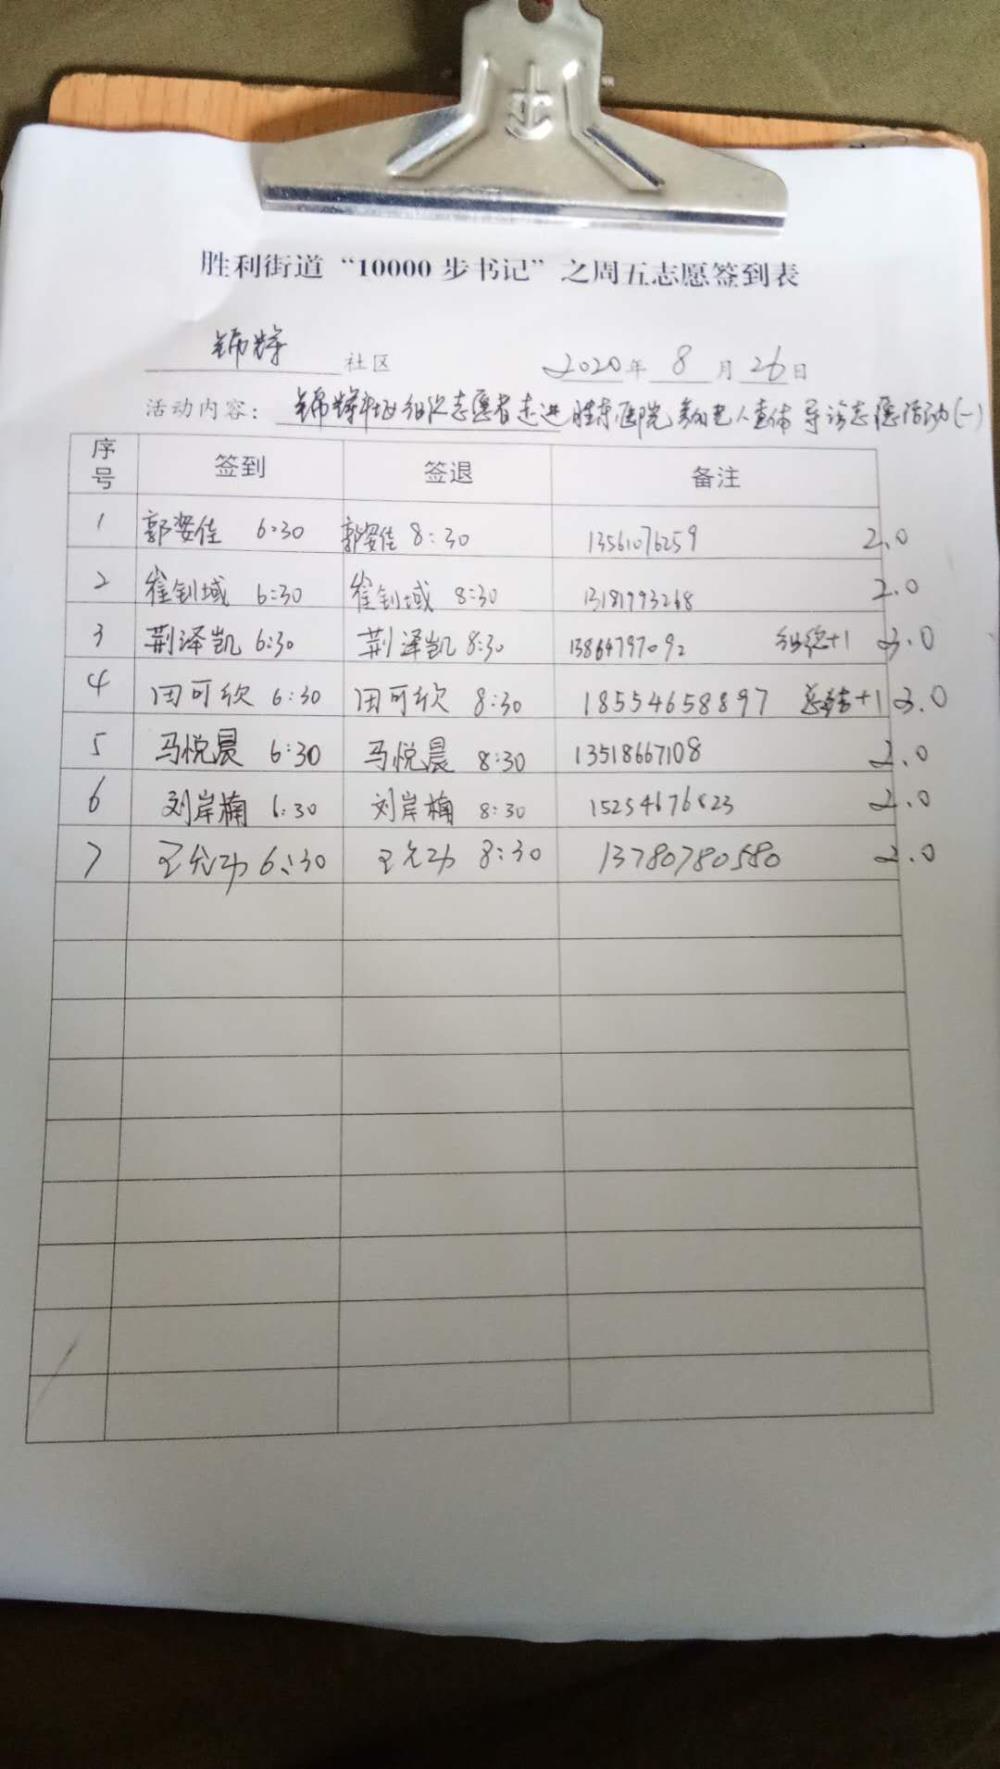 胜利街道“10000步书记”之周五志愿签到表
锦辉 社区 2020年 8 月 26 日
活动内容: 锦辉社区组织志愿者走进胜东医院 老人查体 导诊志愿活动(一)
序号 签到 签退 备注
1 郭姿佳 6:30 郭姿佳 8:30 13561076259 2.0
2 崔钊域 6:30 崔钊域 8:30 13181993268 2.0
3 荆泽凯 6:30 荆泽凯 8:30 13864797092 组织+1 3.0
4 田可欣 6:30 田可欣 8:30 18554658897 总结+1 3.0
5 马悦晨 6:30 马悦晨 8:30 13518667108 2.0
6 刘岸楠 6:30 刘岸楠 8:30 2.0
7 王允功 6:30 王允功 8:30 13780780580 2.0